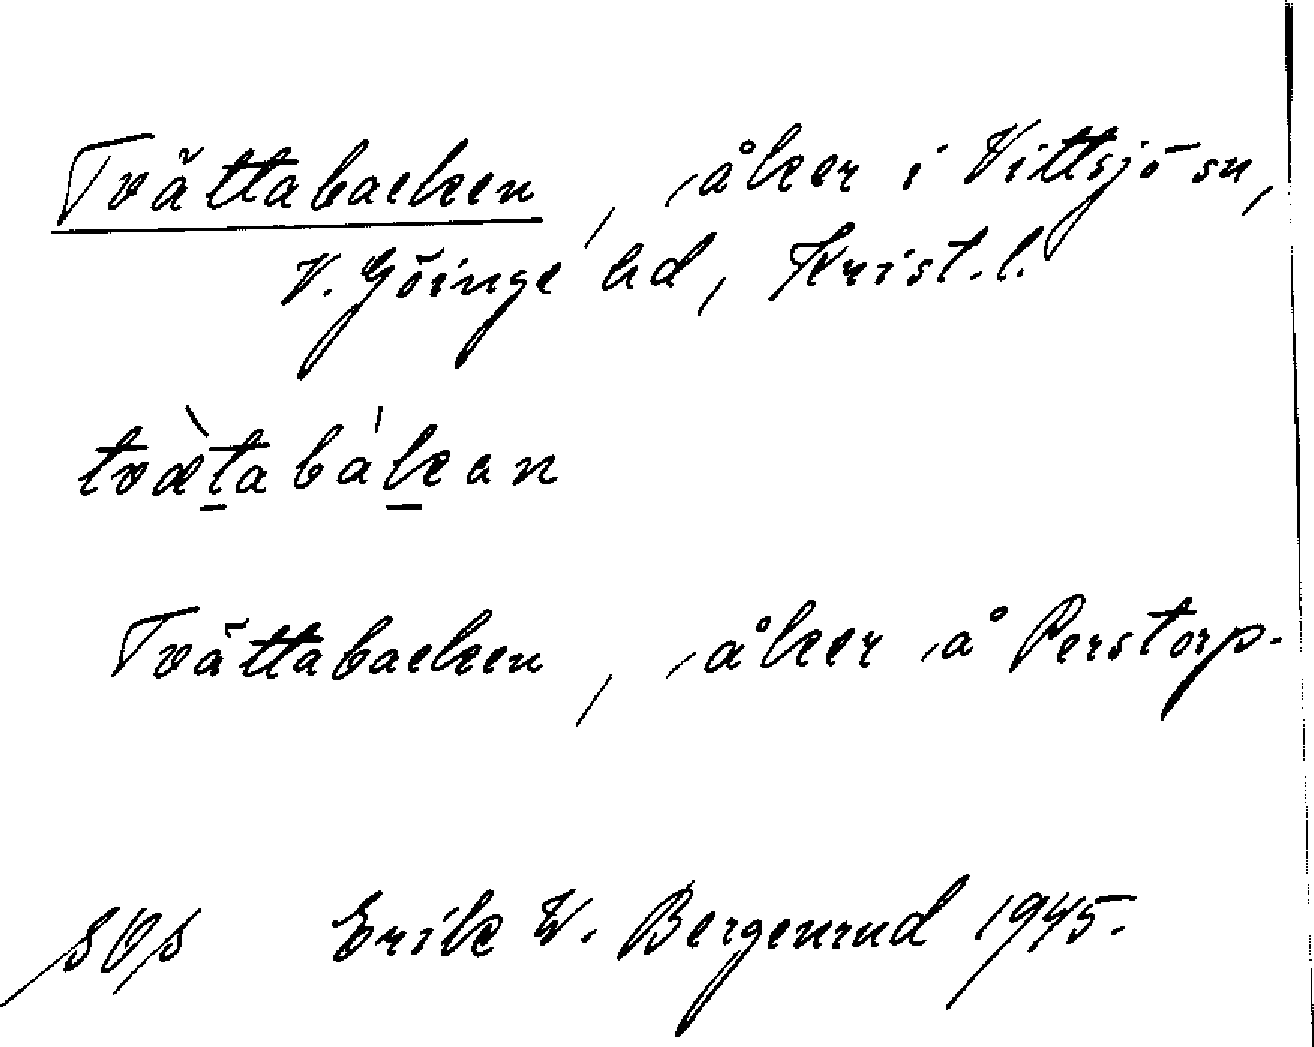 Tvättabacken, åker i Vittsjö sn,
V. Göinge hd, Krist. l.
tvætabakan
Tvättabacken, åker å Perstorp.
Erik W. Bergenrud 1945.